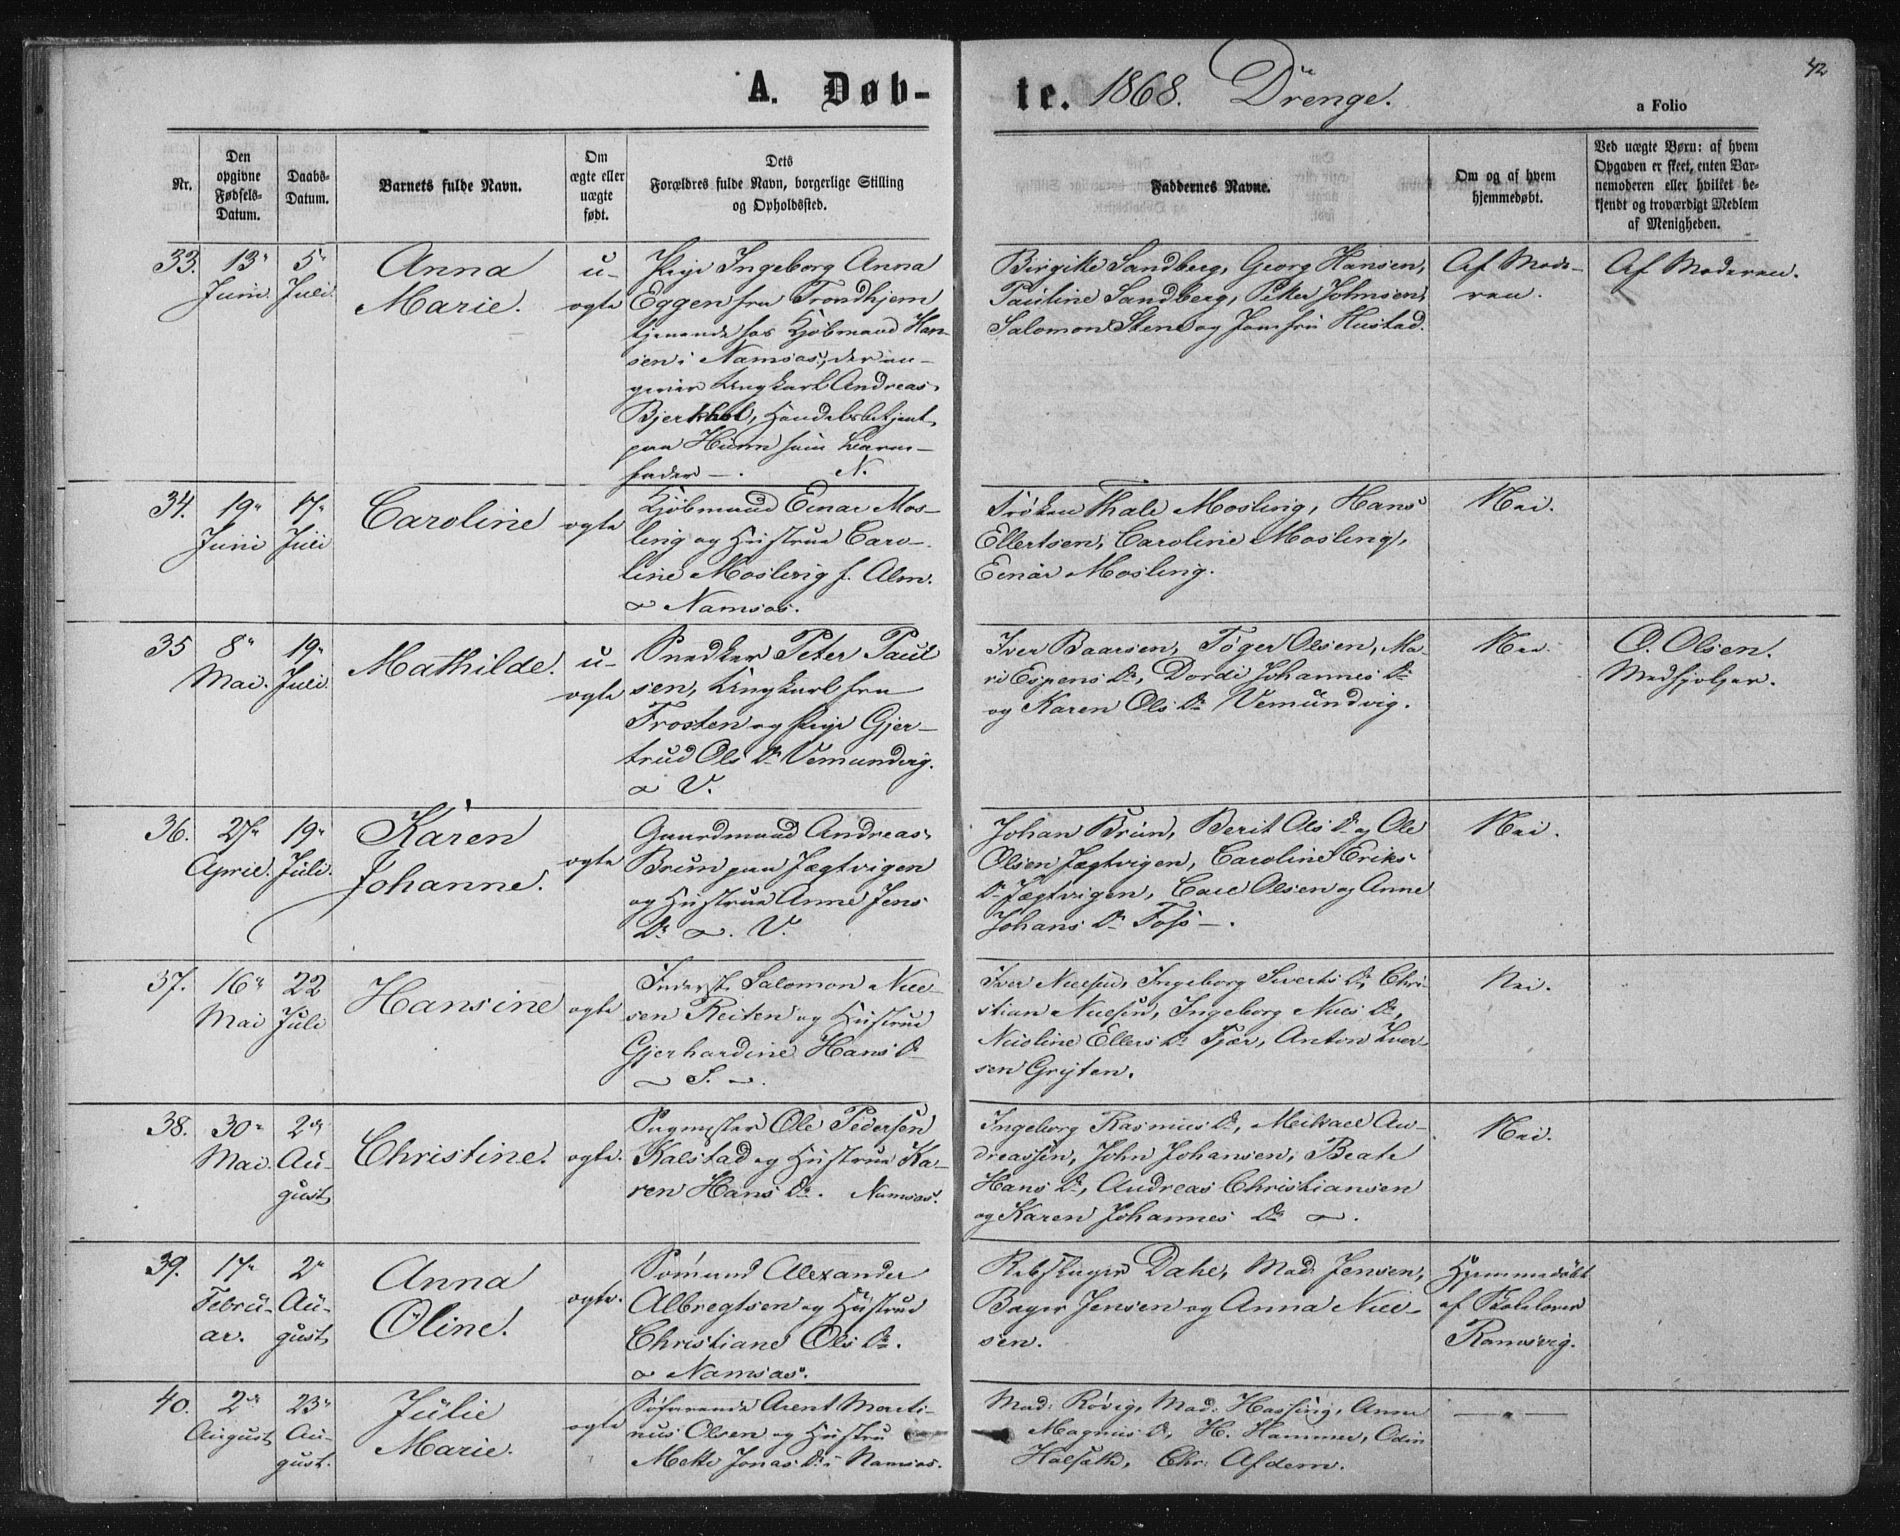 A. Døb-
te. 1868. Drenge.
42
a Folio
Nr.
Den
opgivne
Fødsels-
Datum.
Daabs-
Datum.
Barnets fulde Navn.
Om
ægte eller
uægte
født.
Dets
Forældres fulde Navn, borgerlige Stilling
og Opholdssted.
Faddernes Navne.
Om og af hvem
hjemmedøbt.
Ved uægte Børn: af hvem
Opgaven er skeet, enten Bar-
nemoderen eller hvilket be-
kjendt og troværdigt Medlem
af Menigheden.
33.
13
Juni
5
Juli
Anna
Marie.
u-
ægte
Pige Ingeborg Anna
Eggen fra Trondhjem
tjenende hos Kjøbmand Han-
sen i Namsos, der an-
giver Ungkarl Andreas
Bjerkhol, Handelsbetjent
paa Hunn som Barne-
fader -. N.
Birgitte Sandberg, Georg Hansen,
Pauline Sandberg, Peter Johnsen,
Salomon Stene og Jomfru Hustad.
Af Mode-
ren.
Af Moderen.
34.
19
Juni
17
Juli
Caroline
ægte
Kjøbmand Einar Mos-
ling og Hustrue Caro-
line Mosling f. Alm.
Namsos.
Frøken Thale Mosling, Hans
Ellertsen, Caroline Mosling,
Einar Mosling.
Nei.
35
8
Mai.
19
Juli
Mathilde.
u-
ægte
Snedker Peter Paul
sen, Ungkarl fra
Frosten og Pige Gjer-
trud Ols Dr Vemundvig.
V.
Iver Baarsen, Tøger Olsen, Ma-
ri Espens Dr, Dordi Johannes Dr
og Karen Ols Dr Vemundvig.
Nei.
O. Olsen.
Medhjelper.
36.
27
April.
19
Juli.
Karen
Johanne.
ægte
Gaardmand Andreas
Brun paa Jægtvigen
og Hustrue Anne Jens
Dr V.
Johan Brun, Berit Ols Dr og Ole
Olsen Jægtvigen, Caroline Eriks
Dr Jægtvigen, Carl Olsen og Anne
Johans Dr Foss -.
Nei.
37.
16
Mai
22
Juli
Hansine
ægte
Inderst Salomon Niel-
sen Reiten og Hustrue
Gjerhardine Hans Dr
S.
Iver Nielsen, Ingeborg Siverts Dr, Chri-
stian Nielsen, Ingeborg Niels Dr,
Nicoline Ellers Dr Fjær, Anton Iver-
sen Gryten.
Nei.
38.
30
Mai.
2
Au-
gust
Christine.
ægte.
Sagmester Ole Pedersen
Kalstad og Hustrue Ka-
ren Hans Dr. Namsos.
Ingeborg Rasmus Dr, Meikael An-
dreassen, John Johansen, Beate
Hans Dr, Andreas Christiansen
og Karen Johannes Dr
Nei.
39.
17
Febru-
ar.
2
Au-
gust
Anna
Oline.
ægte.
Sømand Alexander
Albregtsen og Hustrue
Christiane Ols Dr.
Namsos.
Rebslager Dahl, Mad: Jensen,
Bager Jensen og Anna Niel-
sen.
Hjemmedøbt
af Skolelærer
Ramsvig.
40.
2
August
23
Au-
gust.
Julie
Marie.
ægte
Søfarende Arent Marti-
nus Olsen og Hustru
Mette Jonas Dr i Namsos.
Mad: Røvig, Mad: Hassing, Anne
Magnus Dr, H. Hammer, Odin
Chr.